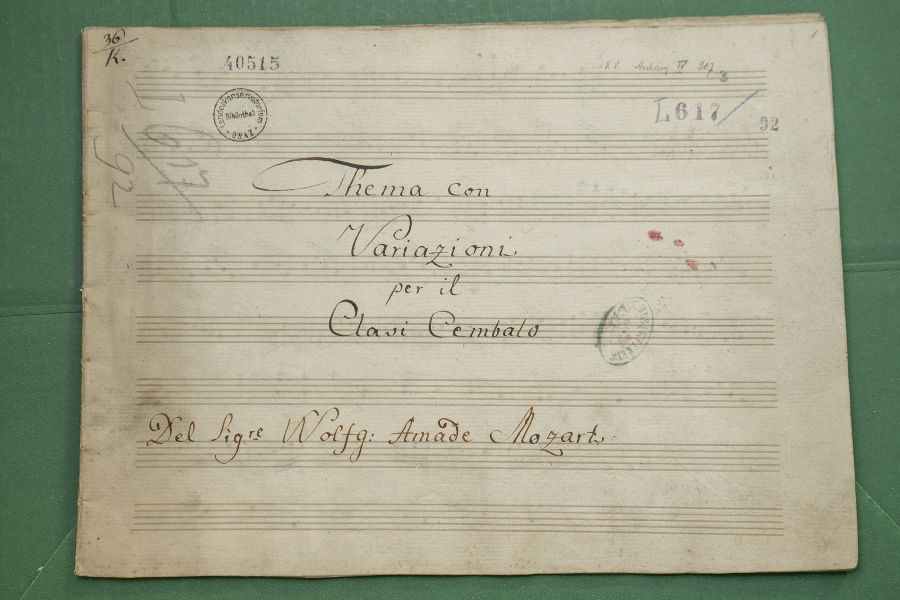 36
K.
40515
Landeskonservatorium
Bibliothek
GRAZ
307
3
1
L617
92
L
617
92
Thema con
Variazioni
per il
Clavi Cembalo
Del Sigre Wolfg: Amade Mozart